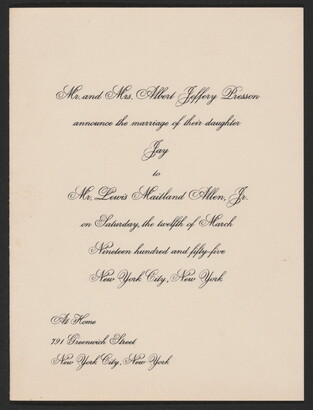 Mr. and Mrs. Albert Jeffery Presson
announce the marriage of their daughter
Jay
to
Mr. Lewis Maitland Allen, Jr.
on Saturday, the twelfth of March
Nineteen hundred and fifty-five
New York City, New York
At Home
791 Greenwich Street
New York City, New York